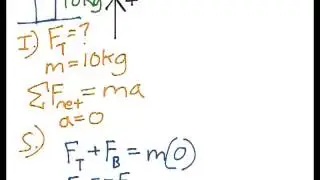 10kg +
I.) F_T = ?
m = 10kg
ΣF_net = ma
a = 0
S.)
F_T + F_B = m(0)